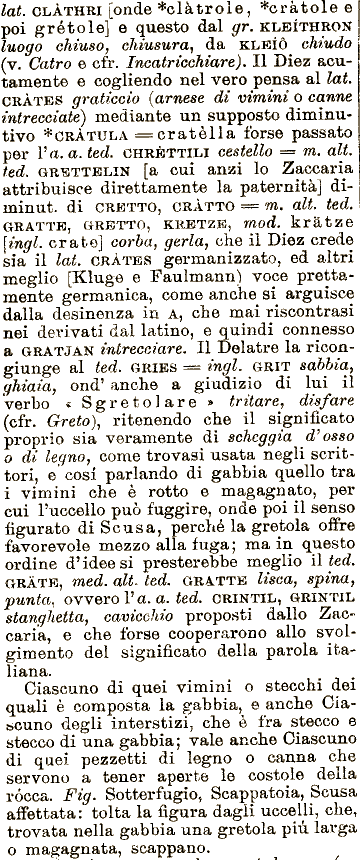 lat. CLÀTHRI [onde *clàtrole, *cràtole e
poi grétole] e questo dal gr. KLEÍTHRON
luogo chiuso, chiusura, da KLEÍÔ chiudo
(v. Catro e cfr. Incatricchiare). Il Diez acu-
tamente e cogliendo nel vero pensa al lat.
CRÀTES graticcio (arnese di vimini o canne
intrecciate) mediante un supposto diminu-
tivo *CRÀTULA = cratèlla forse passato
per l'a. a. ted. CHRÈTTILI cestello = m. alt.
ted. GRETTELIN [a cui anzi lo Zaccaria
attribuisce direttamente la paternità] di-
minut. di CRETTO, CRÀTTO = m. alt. ted.
GRATTE, GRETTO, KRETZE, mod. krätze
[ingl. crate] corba, gerla, che il Diez crede
sia il lat. CRÀTES germanizzato, ed altri
meglio [Kluge e Faulmann) voce pretta-
mente germanica, come anche si arguisce
dalla desinenza in A, che mai riscontrasi
nei derivati dal latino, e quindi connesso
a GRATJAN intrecciare. Il Delatre la ricon-
giunge al ted. GRIES = ingl. GRIT sabbia,
ghiaia, ond' anche a giudizio di lui il
verbo « Sgretolare » tritare, disfare
(cfr. Greto), ritenendo che il significato
proprio sia veramente di scheggia d'osso
o di legno, come trovasi usata negli scrit-
tori, e cosí parlando di gabbia quello tra
i vimini che è rotto e magagnato, per
cui l'uccello può fuggire, onde poi il senso
figurato di Scusa, perché la gretola offre
favorevole mezzo alla fuga; ma in questo
ordine d'idee si presterebbe meglio il ted.
GRÄTE, med. alt. ted. GRATTE lisca, spina,
punta, ovvero l'a. a. ted. CRINTIL, GRINTIL
stanghetta, cavicchio proposti dallo Zac-
caria, e che forse cooperarono allo svol-
gimento del significato della parola ita-
liana.
Ciascuno di quei vimini o stecchi dei
quali è composta la gabbia, e anche Cia-
scuno degli interstizi, che è fra stecco e
stecco di una gabbia; vale anche Ciascuno
di quei pezzetti di legno o canna che
servono a tener aperte le costole della
rócca. Fig. Sotterfugio, Scappatoia, Scusa
affettata: tolta la figura dagli uccelli, che,
trovata nella gabbia una gretola piú larga
o magagnata, scappano.